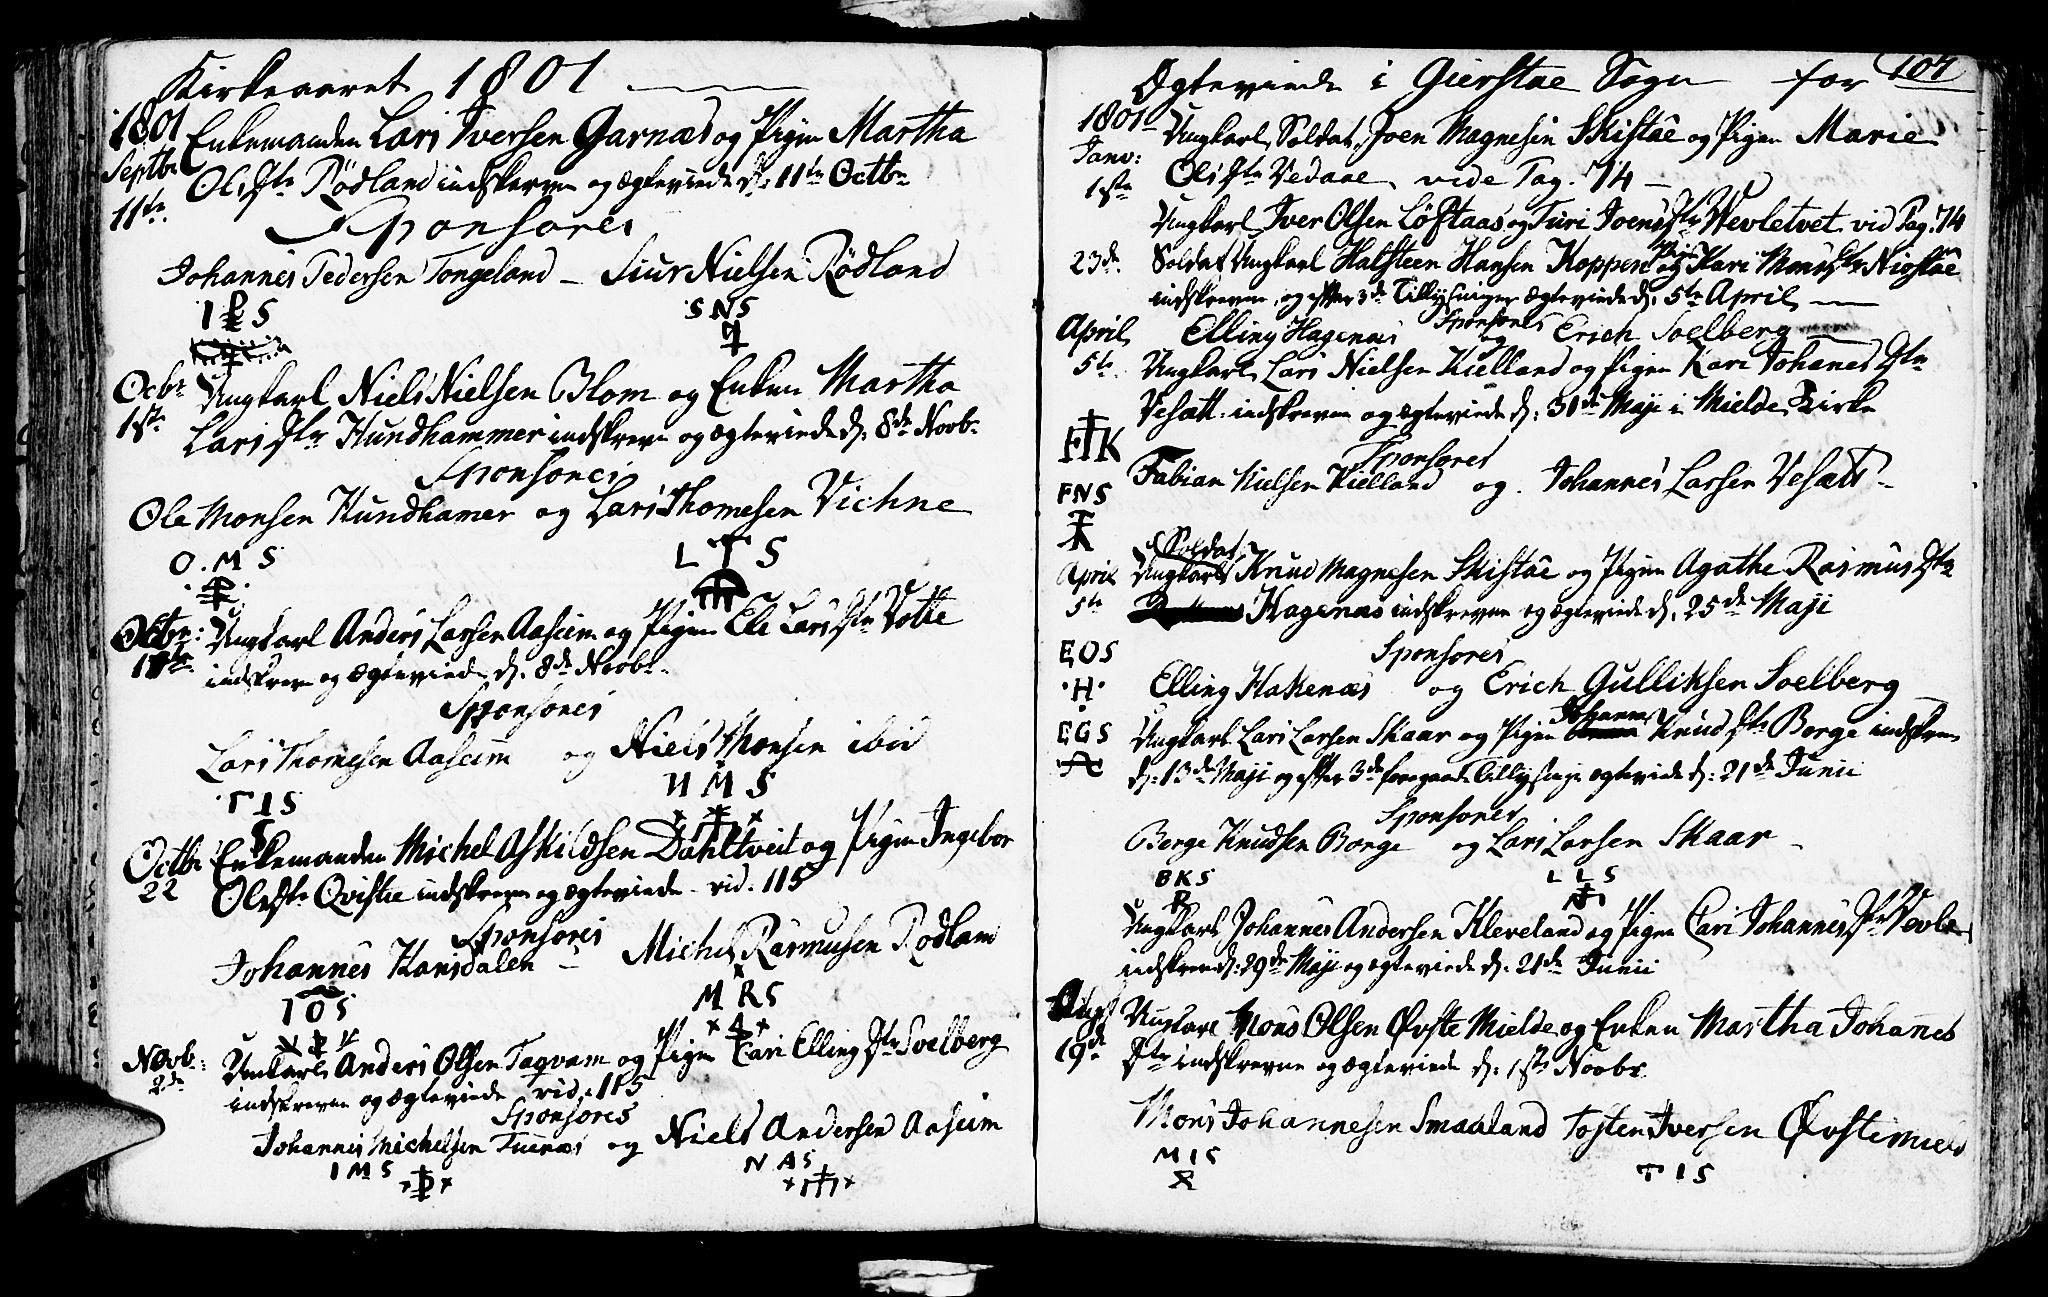 Kirkeaaret 1801
1801 Enkemanden Lars Iversen Garnæs og Pigen Martha
Septbr 11te Ols Dtr Rödland indskreven og ægteviede d: 11te Octbr
Sponsores
Johannes Pedersen Tongeland – Siur Nielsen Rödland
I P S S N S
Octbr Ungkarl Niels Nielsen Blom og Enken Martha
1ste Lars Dtr Hundhammer indskreven og ægteviede d: 8de Novbr
Sponsores
Ole Monsen Hundhamer og Lars Thomesen Vichne
O. M S L T S
Octbr: Ungkarl Anders Larsen Aaseim og Pigen Eli Lars Dtr Votle
indskreven og ægteviede d. 8de Novbr
Sponsores
Lars Thomesen Aaseim og Niels Monsen ibid
T I S N M S
Octbr Enkemanden Michel Askildsen Dahltveit og Pigen Ingebor
22 Ols Dtr Qvistæ indskreven og ægteviede vid. 115
Sponsores
Johannes Hansdalen – Michel Rasmusen Rödland
I O S M R S
Novb: 2de Ungkarl Anders Olsen Taqvam og Pigen Cari Elling Dtr Soelberg
indskreven og ægteviede vid. 115
Sponsores
Johannes Michelsen Tuenæs og Niels Andersen Aaseim
I M S N A S
Ægteviede i Gierstae Sogn for 107
1801 Ungkarl Soldat Joen Magnesen Skistae og Pigen Marie
Janv: 1ste Ols Dtr Vedaae vide Pag. 74
Ungkarl Iver Olsen Löftaas og Turi Joens Dtr Wevletvet vid Pag. 74
23de Soldat Ungkarl Halsteen Hansen Koppen og Pigen Kari Mons Dtr Niostae
indskreven, og efter 3de Tillysninger ægteviede d: 5te April
Sponsores
April Elling Hagenæs og Erich Soelberg
5te Ungkarl Lars Nielsen Kielland og Pigen Kari Johanes Dtr
Vesætt: indskreven og ægteviede d: 31de Maji i Mielde Kirke
Sponsores
F N S Fabian Nielsen Kielland og Johannes Larsen Vesætt
Soldat
April Ungkarl Knud Magnesen Skistae og Pigen Agathe Rasmus Dtr
5te Hagenæs indskreven og ægteviede d. 25de Maji
E O S Sponsores
H Elling Hakenæs og Erich Gulliksen Soelberg
E G S Ungkarl Lars Larsen Skaar og Pigen Johanna Knud Dtr Borge indskrev
d: 13de Maji og efter 3de foregaaende Tillysninger ægteviede d: 21de Junii
Sponsores
Berge Knudsen Borge og Lars Larsen Skaar
B K S L L S
Ungkarl Johannes Andersen Kleveland og Pigen Cari Johannes Dtr
indskreven d: 29de Maji og ægteviede d. 21de Junii
Aug Ungkarl Mons Olsen Øvste Mielde og Enken Martha Johannes
19de Dtr indskreven og ægteviede d: 1ste Novbr
Mons Johannesen Smaaland Tosten Iversen Øvstemield
M I S T I S